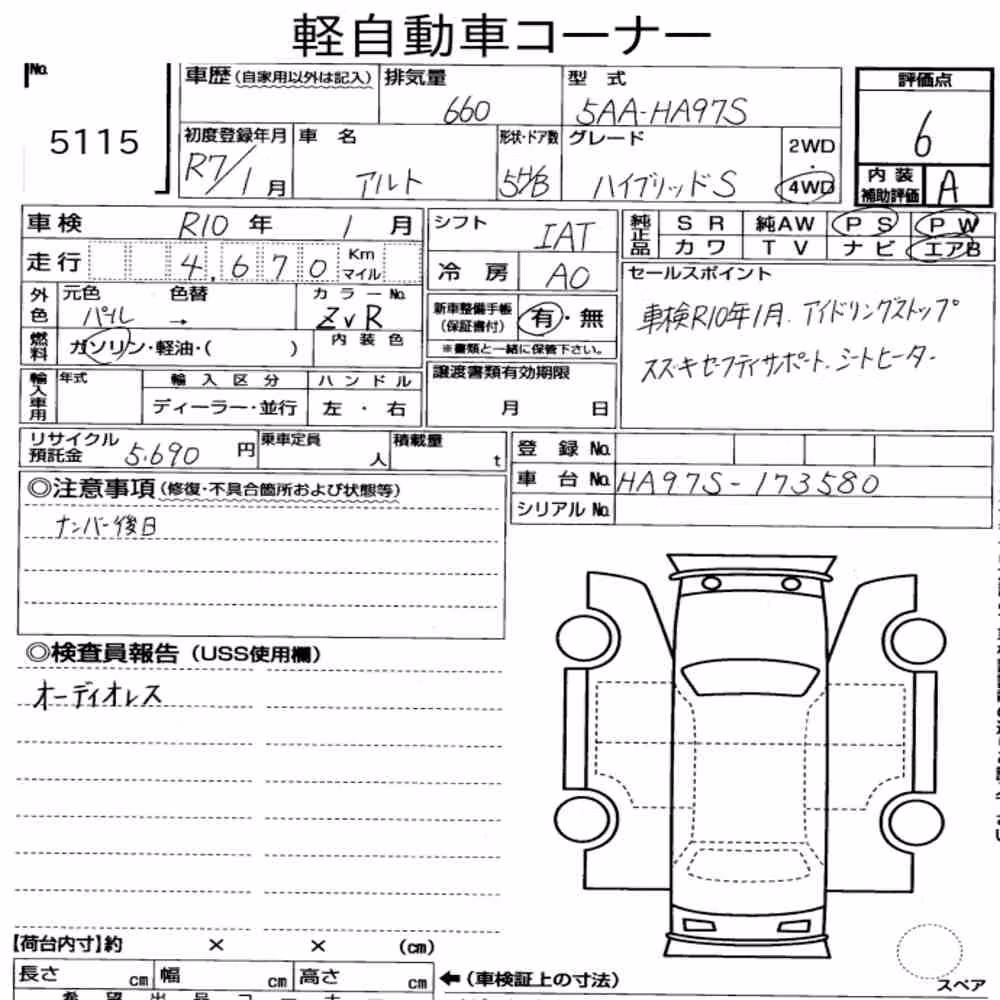 軽自動車コーナー
No.
5115
車歴(自家用以外は記入)
排気量
660
型式
5AA-HA97S
評価点
6
初度登録年月
R7/1月
車名
アルト
形状・ドア数
5H/B
グレード
ハイブリッドS
2WD
・
4WD
内装
補助評価
A
車検 R10年 1月
シフト
IAT
純正品
SR 純AW PS PW
カワ TV ナビ エアB
走行 4,670 Km
マイル
冷房 AO
セールスポイント
車検R10年1月.アイドリングストップ
スズキセーフティサポート.シートヒーター
外色
元色
パール
色替
→
カラーNo.
ZVR
新車整備手帳
(保証書付)
有・無
※書類と一緒に保管下さい。
燃料
ガソリン・軽油・( )
内装色
譲渡書類有効期限
月 日
輸入車用
年式
輸入区分
ディーラー・並行
ハンドル
左・右
リサイクル
預託金
5.690円
乗車定員
人
積載量
t
登録No.
車台No. HA97S-173580
シリアルNo.
◎注意事項(修復・不具合箇所および状態等)
ナンバー後日
◎検査員報告(USS使用欄)
オーディオレス
【荷台内寸】約 × × (cm)
長さ cm 幅 cm 高さ cm
←(車検証上の寸法)
スペア